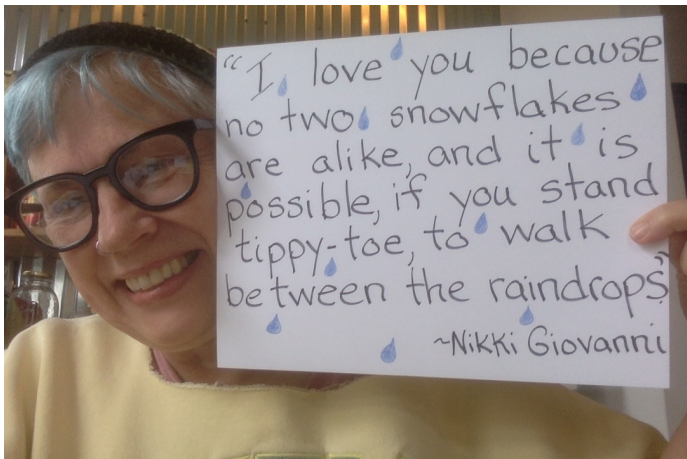 “I love you because
no two snowflakes
are alike, and it is
possible, if you stand
tippy-toe, to walk
between the raindrops”
~Nikki Giovanni